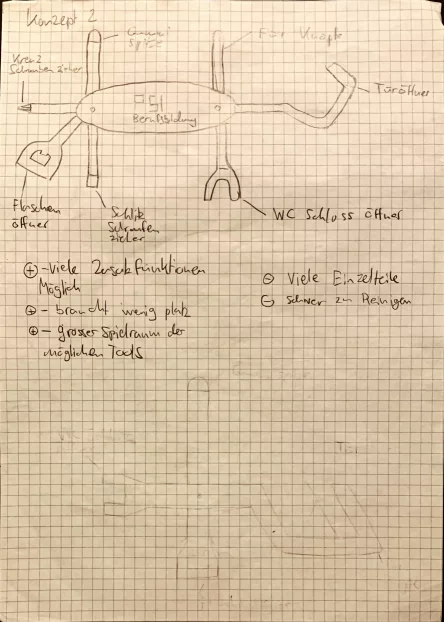 Konzept 2
Gummi
Spitze
Für Knöpfe
Kreuz
Schraubenzieher
Türöffner
Berufsbildung
Flaschen
öffner
Schlitz
Schrauben
zieher
WC Schloss öffner
⊕ - Viele Zusatzfunktionen
Möglich
⊕ - braucht wenig platz
⊕ - grosser Spielraum der
möglichen Tools
⊖ Viele Einzelteile
⊖ schwer zu Reinigen